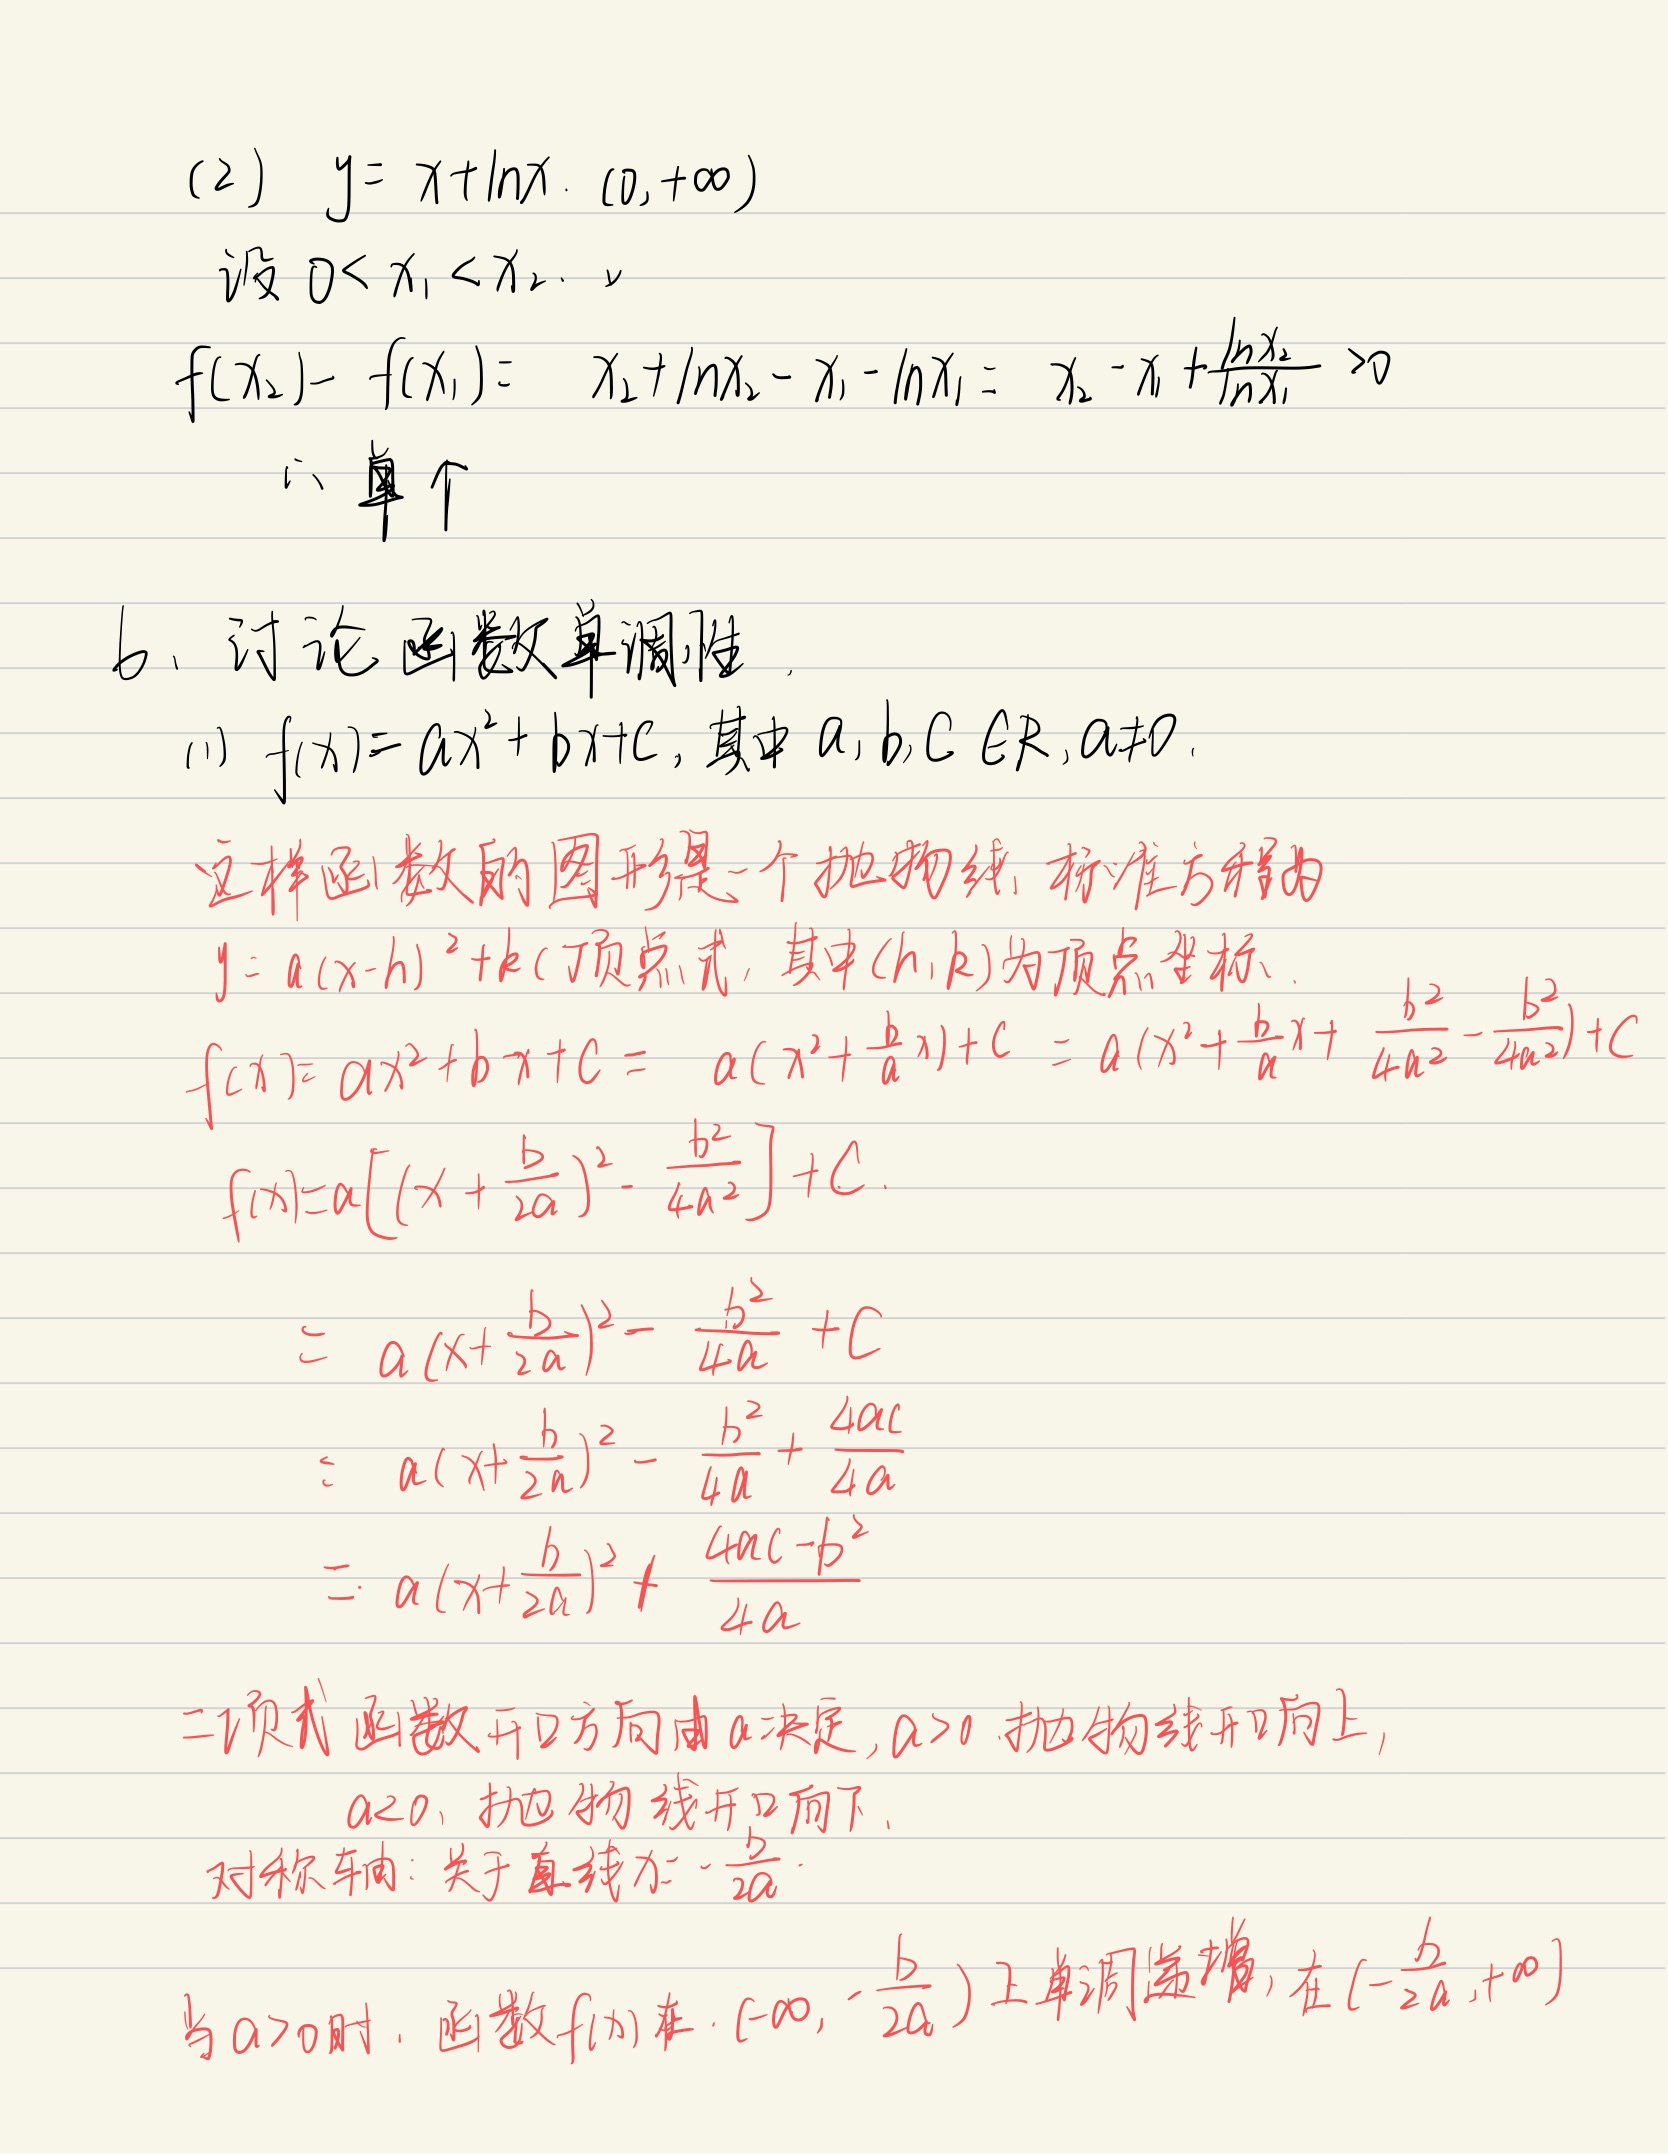 (2) y = x+lnx. (0,+∞)
设 0< x₁ < x₂.
f(x₂) - f(x₁) = x₂+lnx₂ - x₁ - lnx₁ = x₂ - x₁ + lnx₂/lnx₁ >0
∴ 单↑
6、讨论函数单调性.
(1) f(x) = ax² + bx+c, 其中 a, b, c ∈R, a≠0.
这样函数的图形是一个抛物线, 标准方程为
y = a(x-h)² + k (顶点式, 其中(h,k)为顶点坐标.
f(x) = ax² + bx + c = a(x² + b/a x) + c = a(x² + b/a x + b²/4a² - b²/4a²) + c
f(x) = a[(x + b/2a)² - b²/4a²] + c.
= a(x+ b/2a)² - b²/4a + c
= a(x+ b/2a)² - b²/4a + 4ac/4a
= a(x+ b/2a)² + 4ac-b²/4a
二项式函数开口方向由a决定, a>0 抛物线开口向上,
a<0, 抛物线开口向下.
对称轴: 关于直线x = - b/2a.
当a>0时, 函数f(x)在 (-∞, - b/2a) 上单调递增, 在 (- b/2a, +∞)